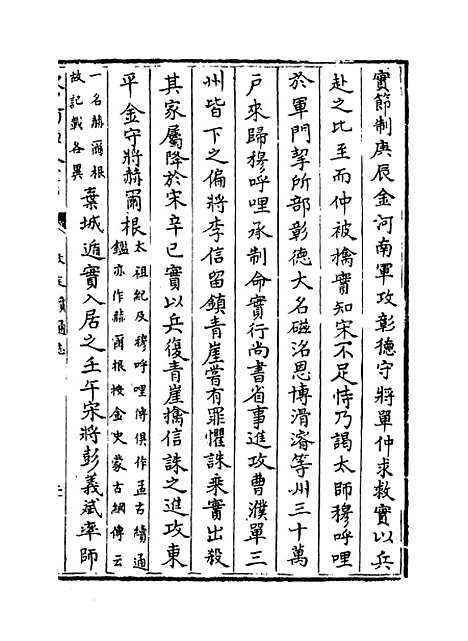 實節制庚辰金河南軍攻彰德守將單仲求救實以兵
赴之比至而仲被擒實知宋不足恃乃謁太師穆呼哩
於軍門挈所部彰德大名磁洺恩博滑濬等州三十萬
戶來歸穆呼哩承制命實行尚書省事進攻曹濮單三
州皆下之偏將李信留鎮青崖嘗有罪懼誅乘實出殺
其家屬降於宋辛巳實以兵復青崖擒信誅之進攻東
平金守將赫爾根太祖紀及穆呼哩傳俱作孟古續通
鑑亦作赫爾根按金史蒙古綱傳云
一名赫爾根
故記載各異棄城遁實入居之壬午宋將彭義斌率師